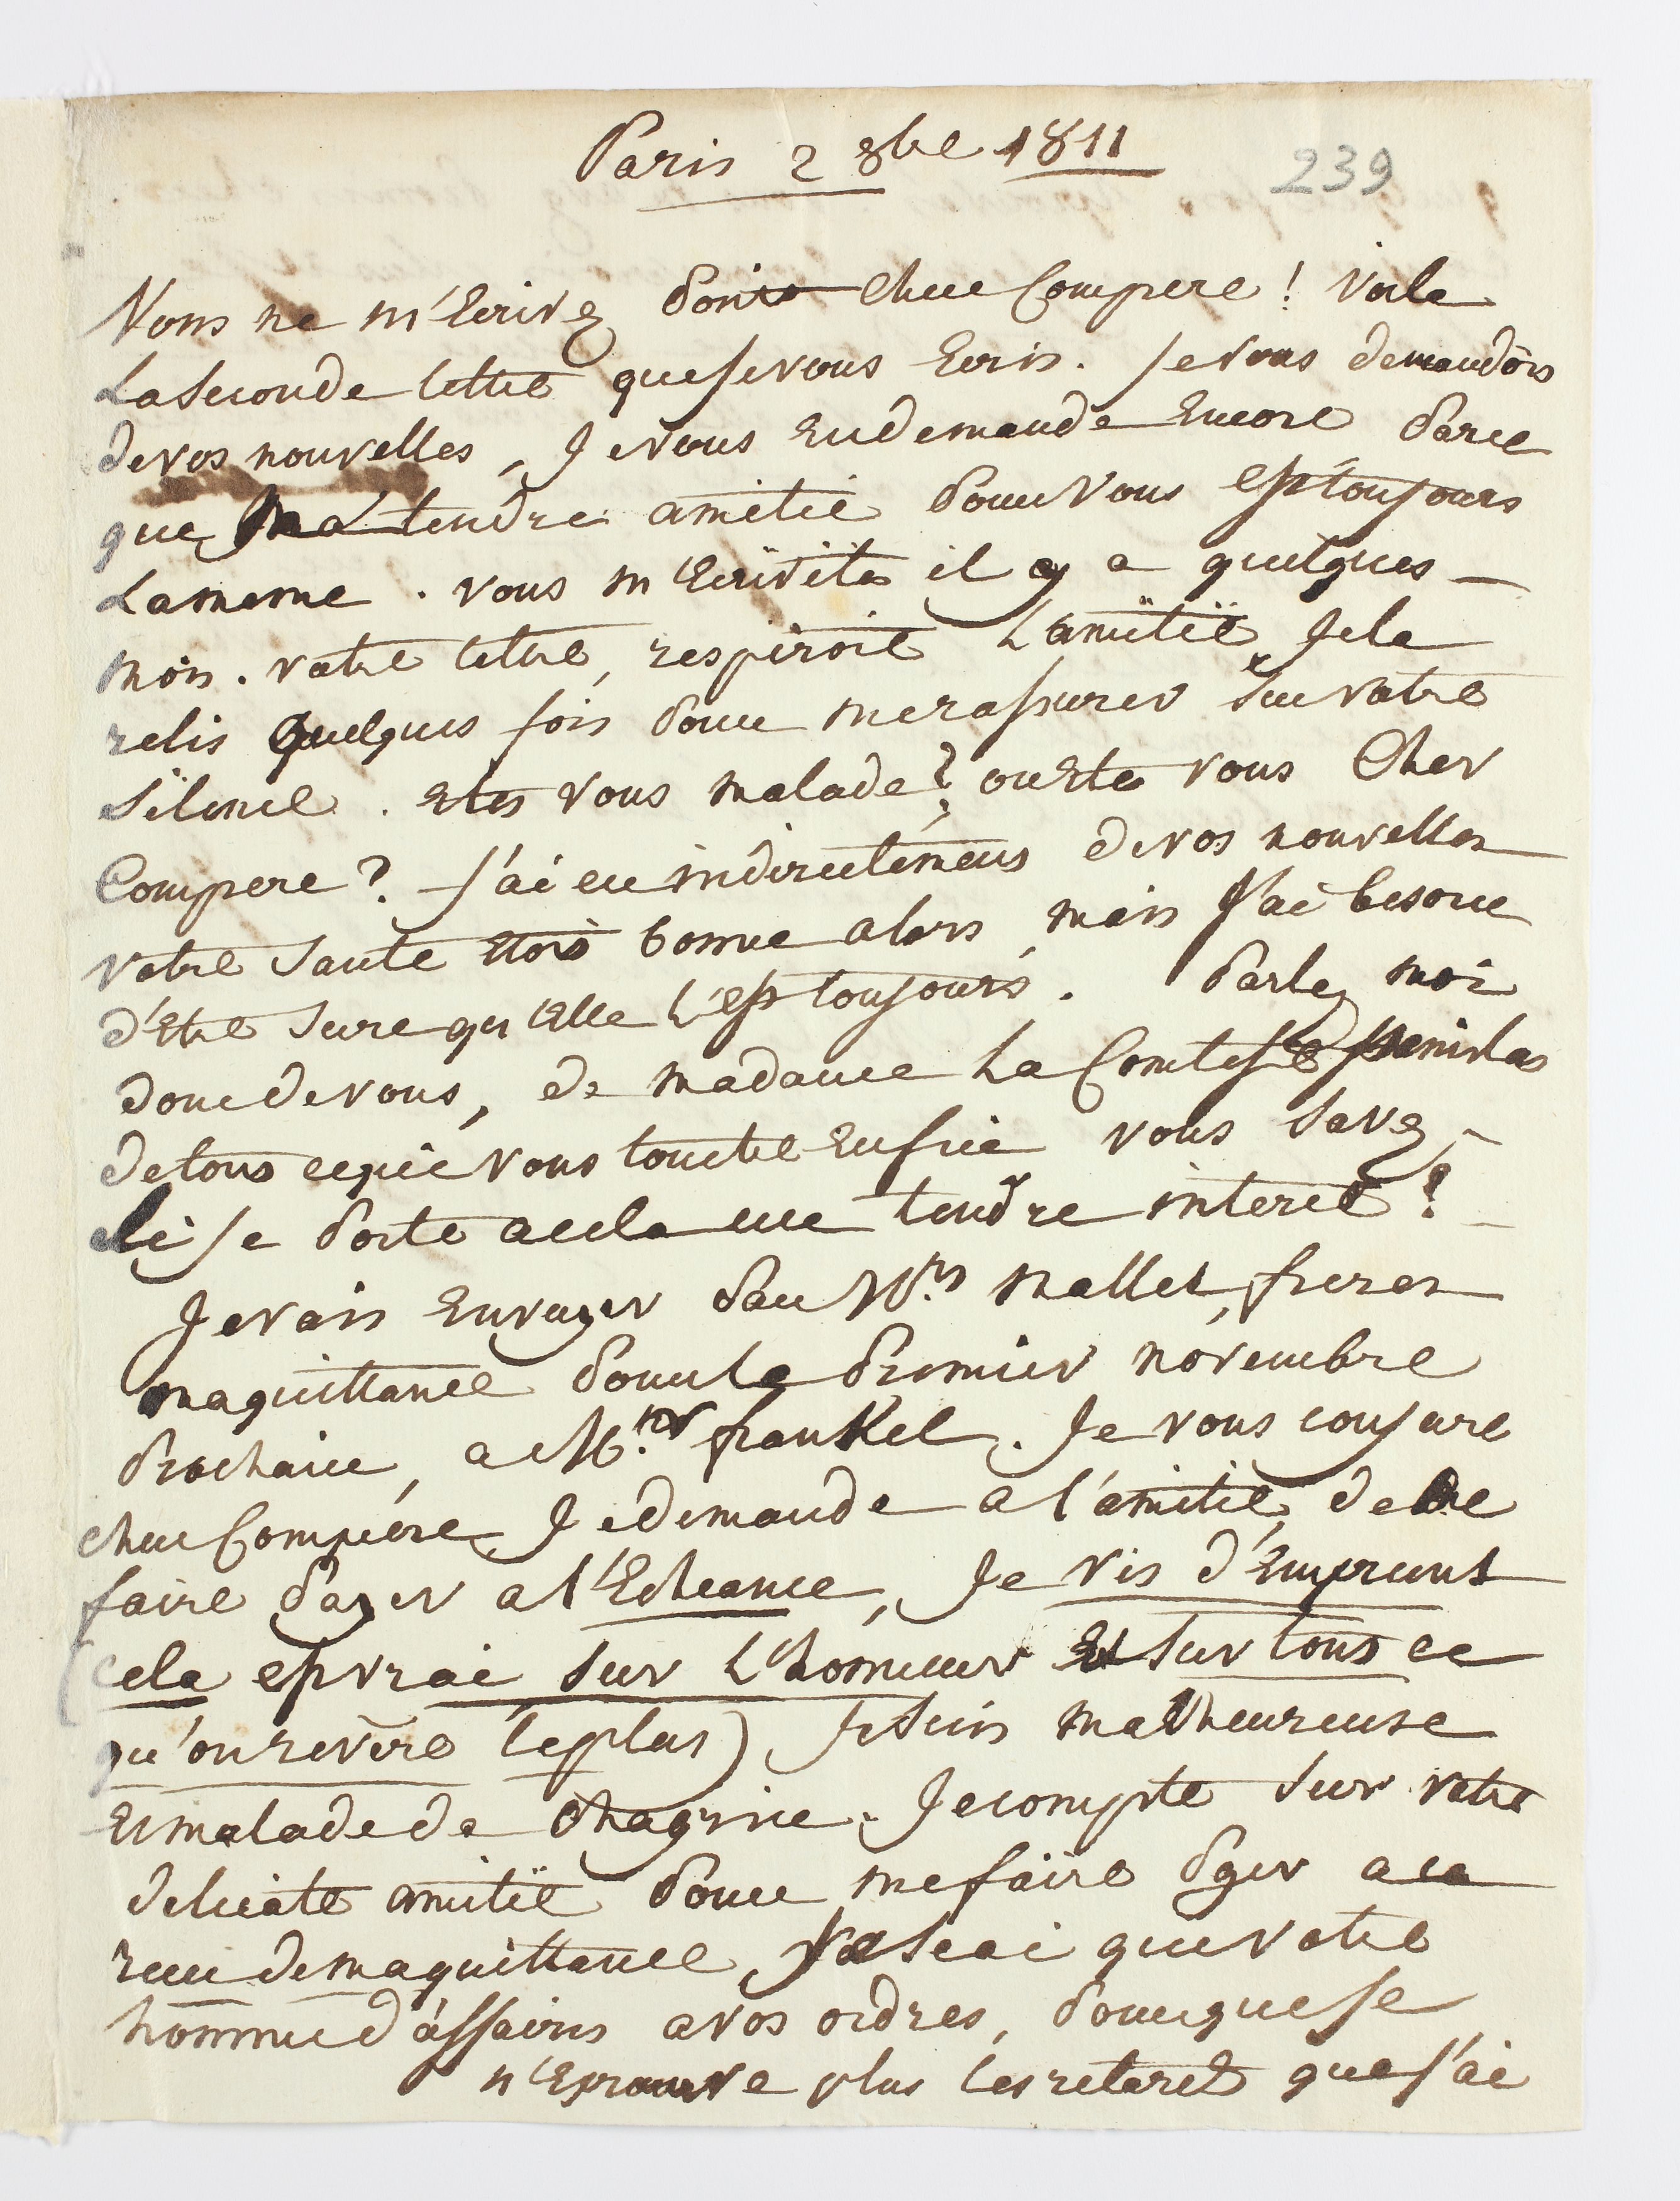 Paris 2 8bre 1811
239
Vous ne m'Ecrivez point cher Compere ! voila
La Seconde lettre que je vous Ecris. Je vous demandois
de vos nouvelles, Je vous En demande Encore parce
que Ma tendre amitié pour vous est toujours
La meme. vous m'Ecrivites il y a quelques
mois. votre lettre, respiroit L'amitié, Je la
relis quelques fois pour me rassurer Sur votre
Silence. Etes vous malade ? ou Etes vous Cher
Compere ? J'ai eu indirectement de vos nouvelles
votre Santé Etoit bonne alors, mais J'ai besoin
d'Etre Sure qu'Elle L'est toujours. Parlez moi
donc de vous, de madame La Comtesse Stanislas
de tout ce qui vous touche Enfin vous Savez
si je porte a cela un tendre interet !
Je vais Envoyer par Mrs Mallet, freres
ma quittance pour le premier novembre
prochain, a Mr frankel. Je vous conjure
cher Compère, Je demande a l'amitié, de me
faire payer a l'Echeance, Je vis d'Emprunt
(cela est vrai Sur L'honneur Et Sur tout ce
qu'on revère le plus) Je Suis malheureuse
Et malade de Chagrin. Je compte Sur votre
delicate amitié pour me faire payer a la
recue de ma quittance, Je Scai que votre
homme d'affaires a vos ordres, pour que je
n'Eprouve plus les retards que j'ai